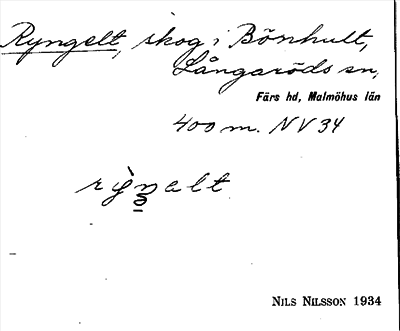 Ryngelt, skog i Bönhult,
Långaröds sn,
Färs hd, Malmöhus län
400 m. NV 34
rỳŋalt
NILS NILSSON 1934